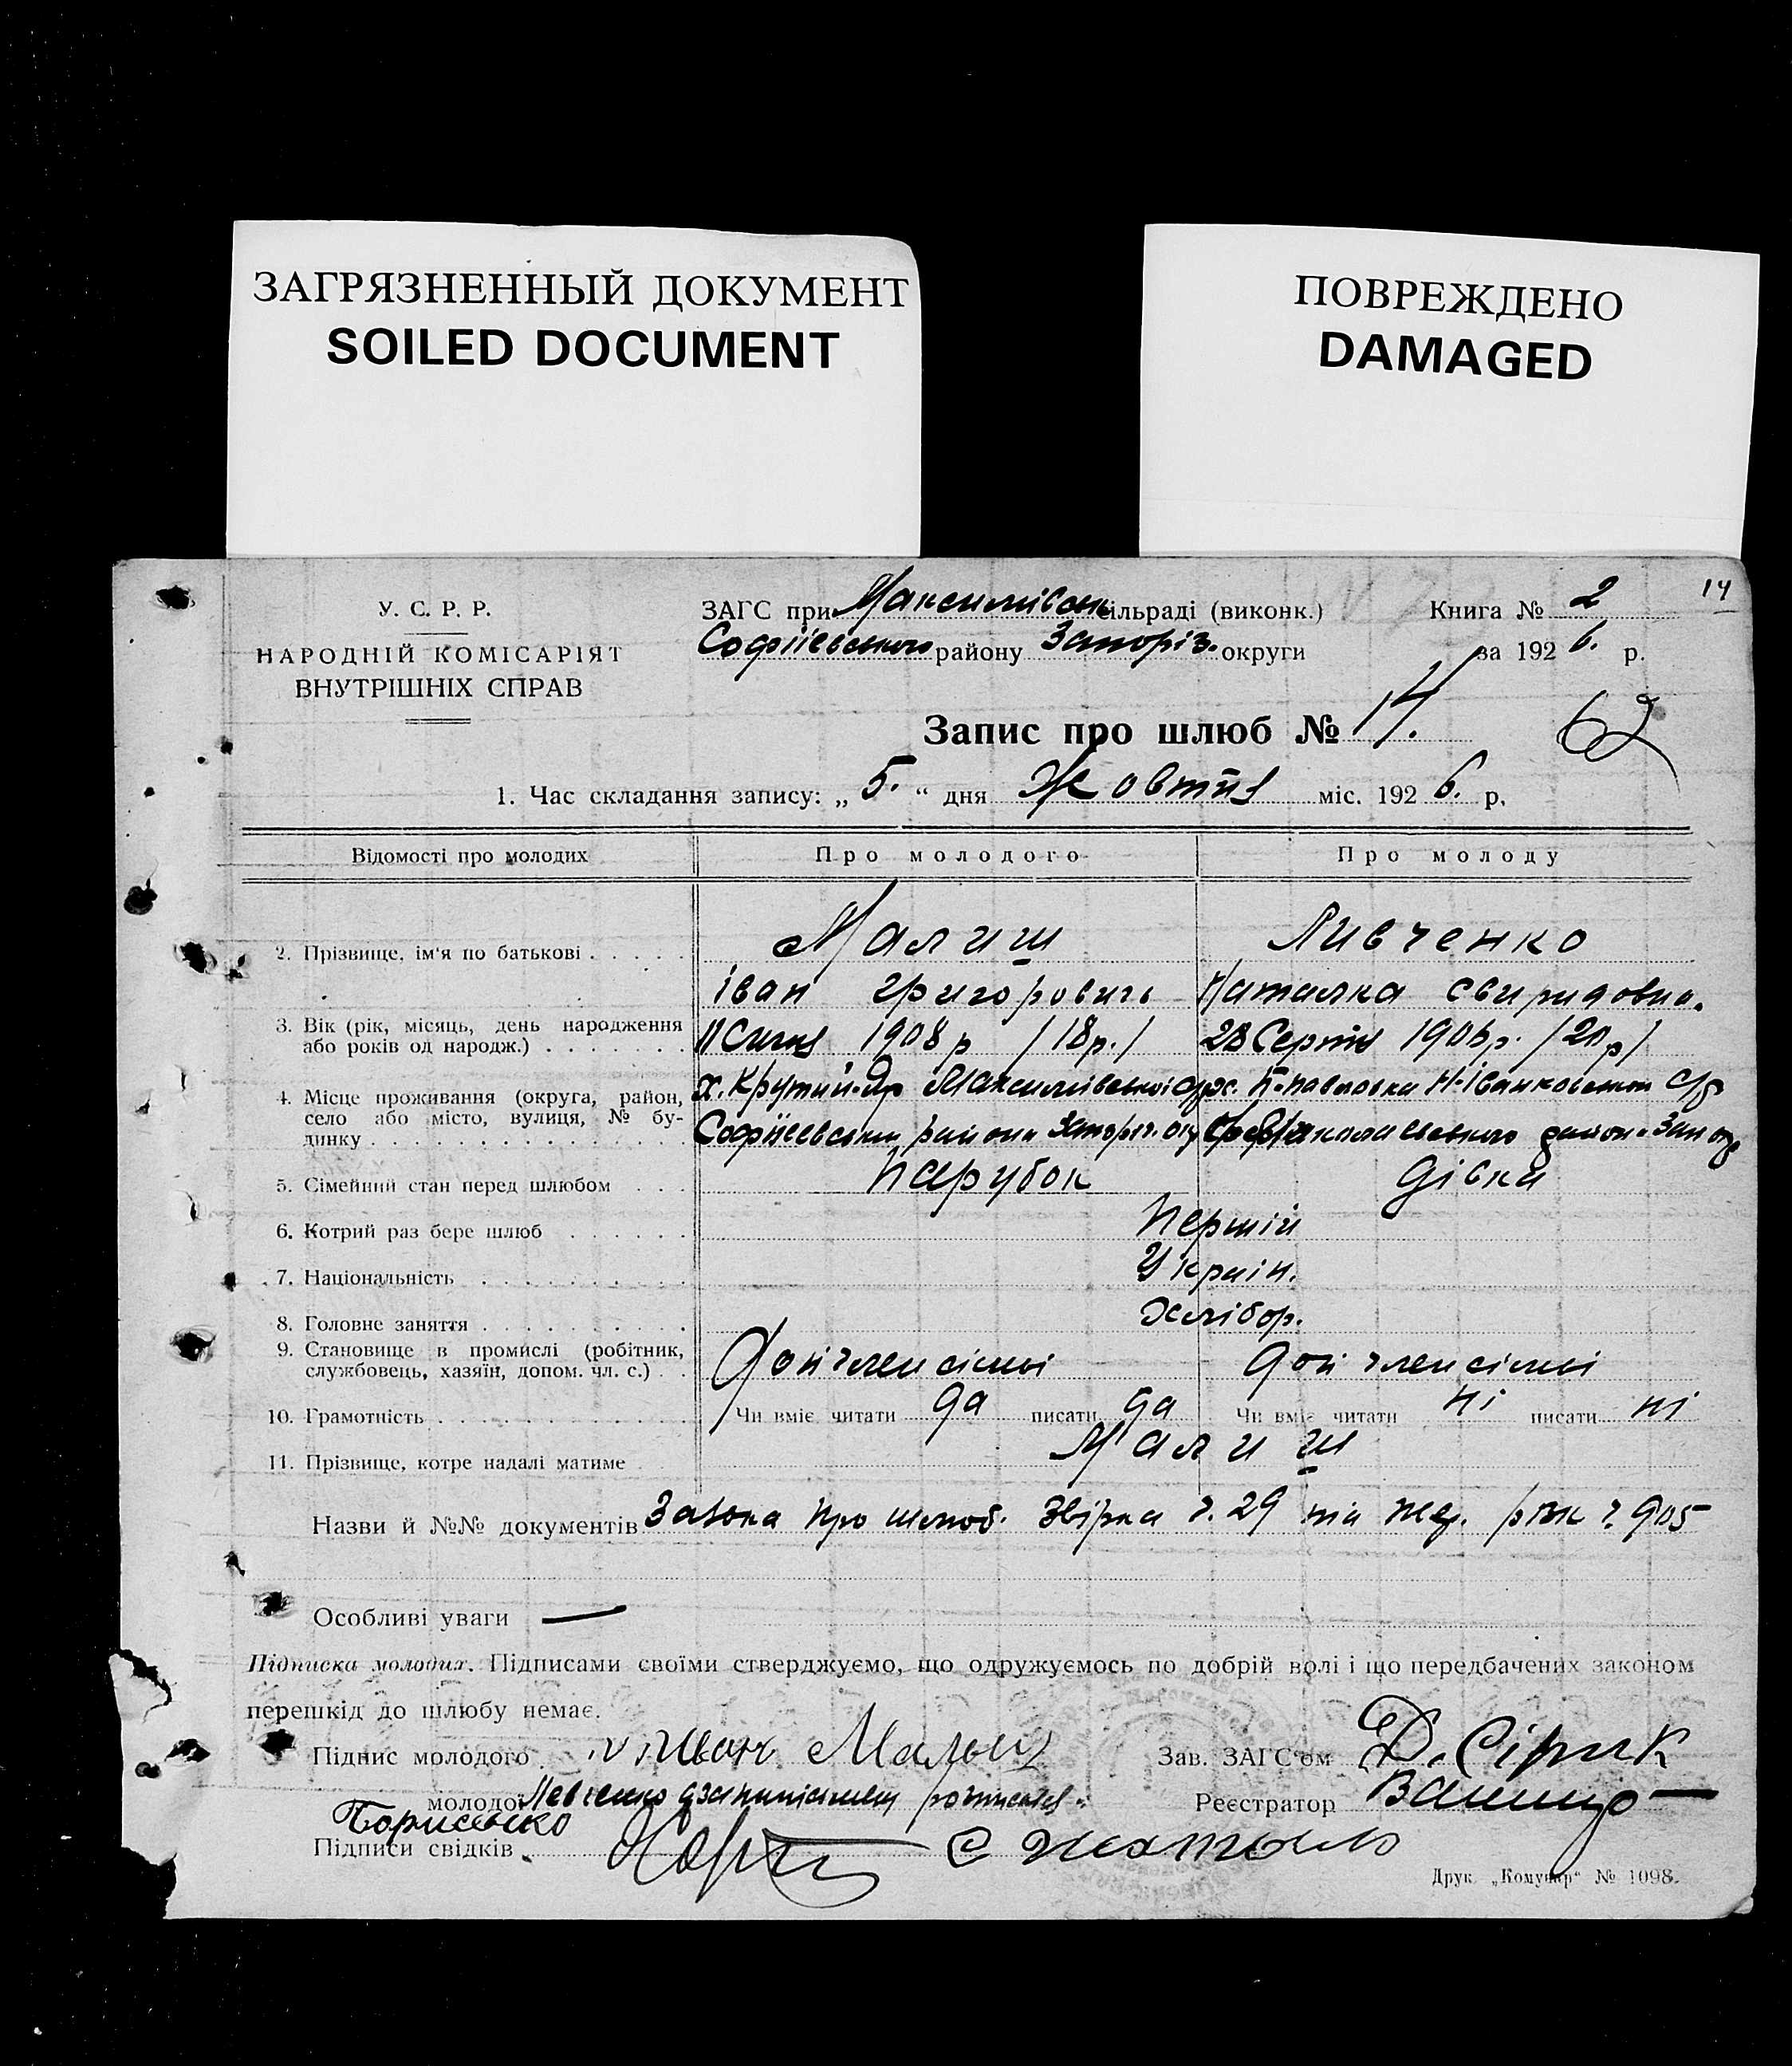 ЗАГРЯЗНЕННЫЙ ДОКУМЕНТ
SOILED DOCUMENT
ПОВРЕЖДЕНО
DAMAGED
14
У. С. Р. Р.
НАРОДНІЙ КОМІСАРІЯТ
ВНУТРІШНІХ СПРАВ
ЗАГС при Максимівськ сільраді (виконк.)
Книга № 2
Софіївського району Запоріз. округи
за 1926. р.
Запис про шлюб № 14.
62
1. Час складання запису: „5." дня Жовтня міс. 1926. р.
Відомості про молодих
Про молодого
Про молоду
2. Прізвище, ім'я по батькові
Малиш
Ливченко
Іван Григоровичь
Наталка Свиридовна.
3. Вік (рік, місяць, день народження
або років од народж.)
11 Сичня 1908 р /18р./
28 Серпня 1906р. /20 р/
4. Місце проживання (округа, район,
село або місто, вулиця, № бу-
динку
х. Крутий-Яр Максимівської с/р
х. Павловка Н-Іванковской с/р
Софіїевськи района Запоріз. ок
района Зап окр
5. Сімейний стан перед шлюбом
Парубок
Дівка
6. Котрий раз бере шлюб
Першій
7. Національність
Україн.
8. Головне заняття
Хлібор.
9. Становище в промислі (робітник,
службовець, хазяїн, допом. чл. с.)
Доп член сімьі
Доп член сімьі
10. Грамотність
Чи вміє читати да писати да
Чи вміє читати ні писати ні
11. Прізвище, котре надалі матиме
Малиш
Назви й №№ документів Заявка про шлюб. Звірка ч. 29 ч. 905
Особливі уваги —
Підписка молодих. Підписами своїми стверджуємо, що одружуємось по добрій волі і що передбачених законом
перешкід до шлюбу немає.
Підпис молодого Иван Малыш
Зав. ЗАГС'ом Д. Сірик
молодої Левченко
Реєстратор
Борисенко
Підписи свідків
Друк „Комунар" № 1098.